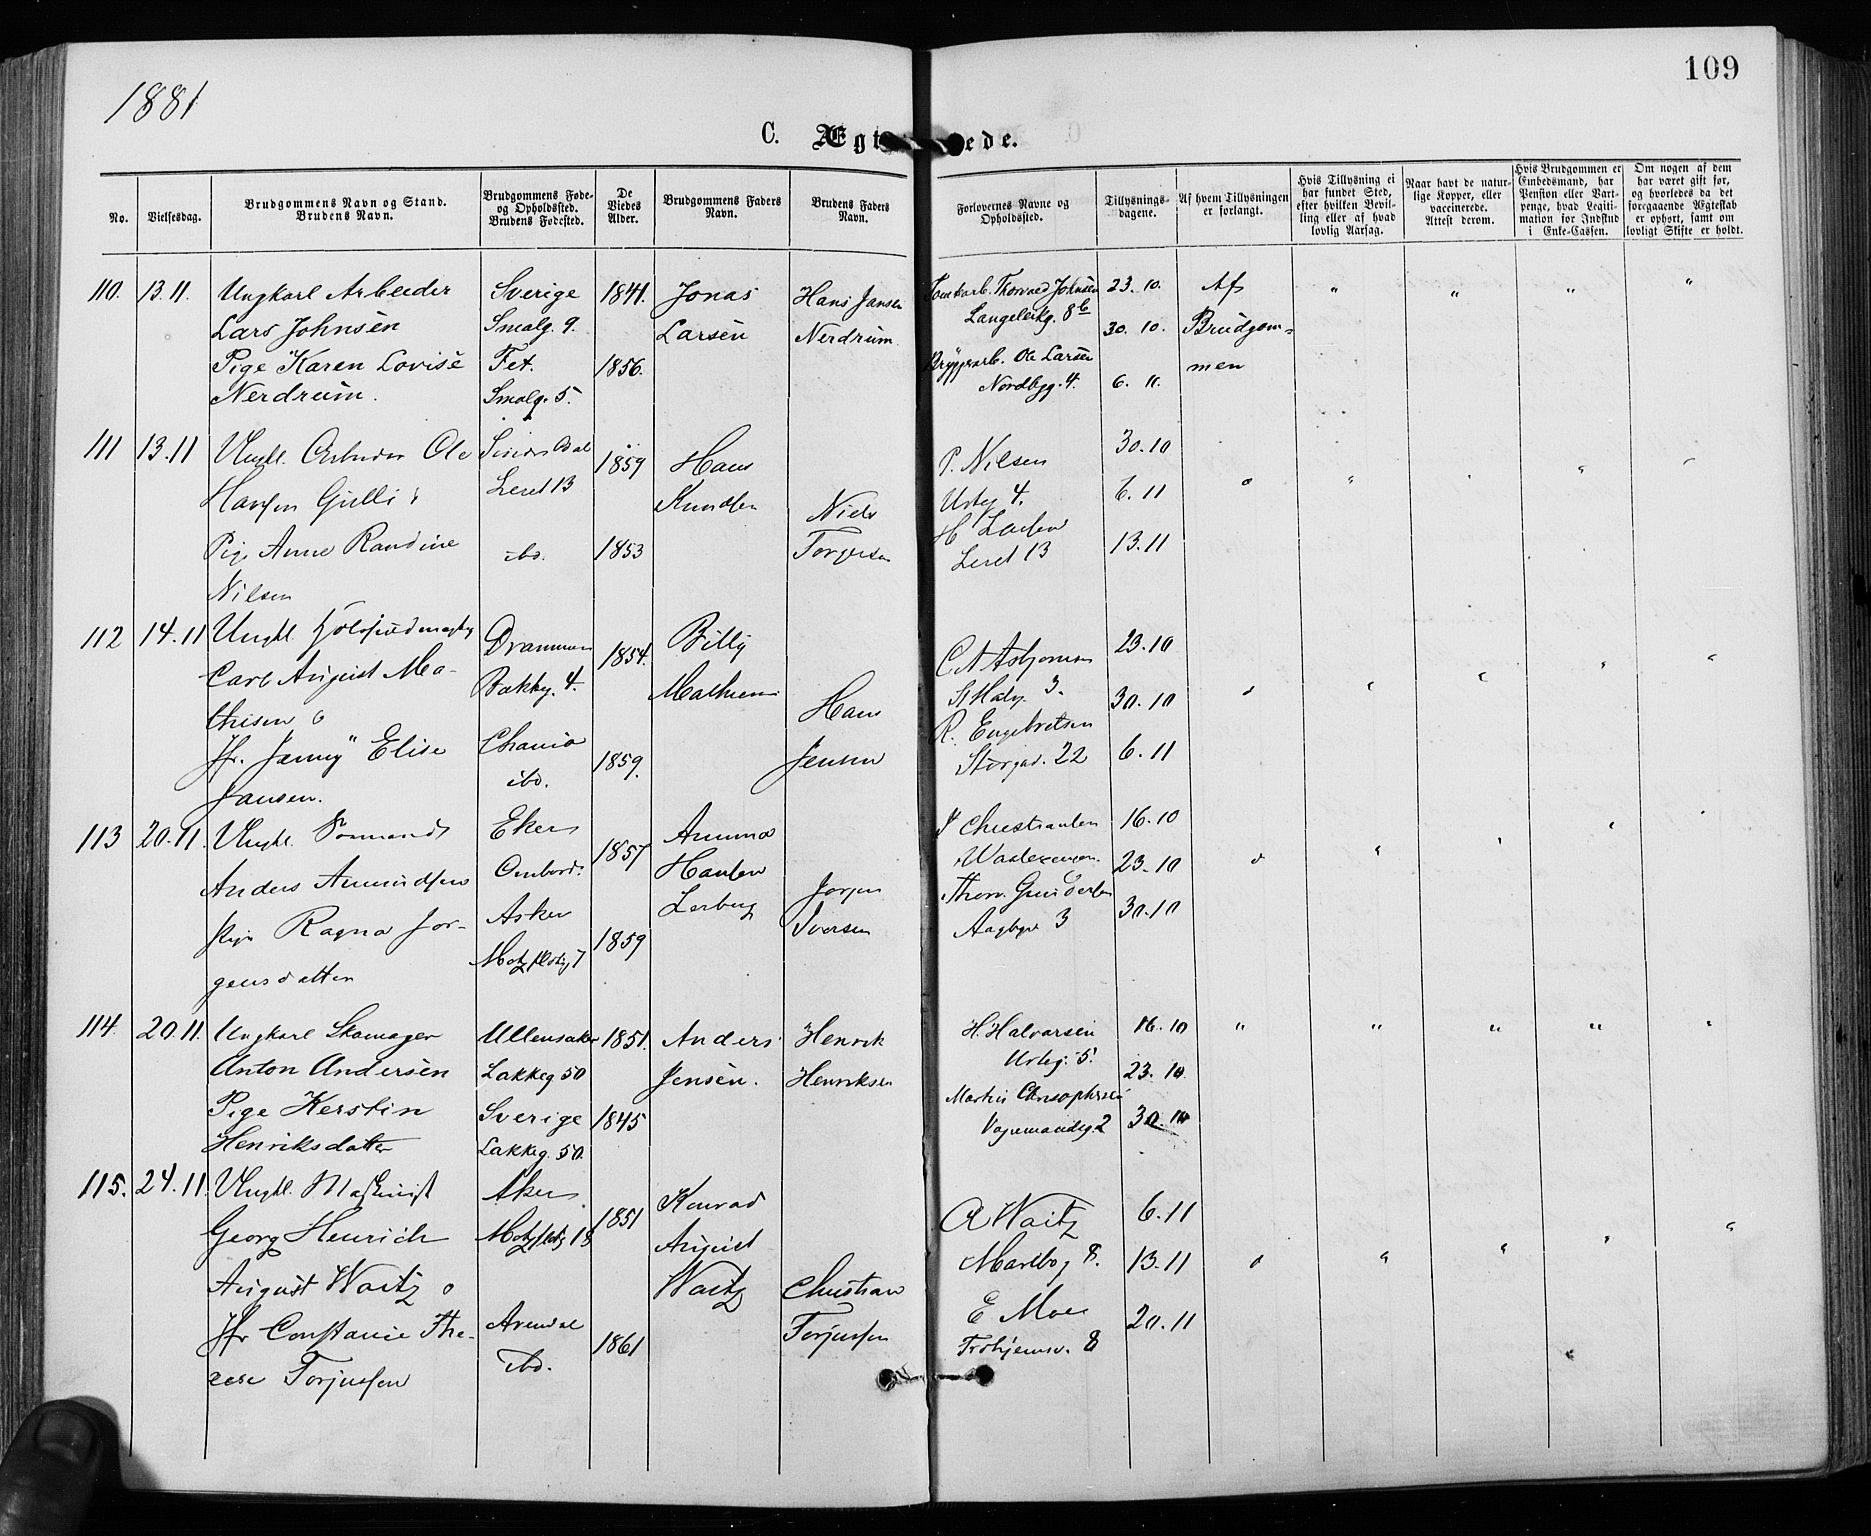 1881
109
C. Ægt ede.
No.
Vielsesdag.
Brudgommens Navn og Stand.
Brudens Navn.
Brudgommens Føde-
og Opholdssted.
Brudens Fødested.
De
Viedes
Alder.
Brudgommens Faders
Navn.
Brudens Faders
Navn.
Forlovernes Navne og
Opholdssted.
Tillysnings-
dagene.
Af hvem Tillysningen
er forlangt.
Hvis Tillysning ei
har fundet Sted,
efter hvilken Bevil-
ling eller af hvad
lovlig Aarsag.
Naar havt de natur-
lige Kopper, eller
vaccinerede.
Attest derom.
Hvis Brudgommen er
Embedsmand, har
Pension eller Vart-
penge, hvad Legiti-
mation for Indskud
i Enke-Cassen.
Om nogen af dem
har været gift før,
og hvorledes da det
foregaaende Ægteskab
er ophørt, samt om
lovligt Skifte er holdt.
110. 13.11. Ungkarl Arbeider Sverige 1841. Jonas Hans Jansen Thorvald Johnsen 23. 10. Af " " " "
Lars Johnsen Smalg. 9. Larsen Nerdrum. Langeleikg. 8b 30. 10. Brudgom-
Pige Karen Lovise Fet. 1856. Bryggearb. Ole Larsen men
Nerdrum. Smalg. 5. Nordbyg. 4. 6. 11.
111 13.11 Ungkl. Arbeider Ole 1859 Hans P. Nilsen 30.10
Hansen Gulli & Leret 13 Knudsen Niels Urteg 4. 6.11
Pige Anne Randine ibd. 1853 Torgersen H Larsen 13.11
Nilsen Leret 13
112 14.11 Ungkl. Drammen 1854. Billy C A Asbjornsen 23.10
Carl August Ma- Bakkg. 4. Mathiesen Hans St Halvg. 3. 30.10
thisen & R. Engebretsen
Jfr. Jenny Elise Chania 1859. Jensen Storgad. 22 6.11
Jansen. ibd.
113 20.11. Ungkl. Sømand Eker 1857 Amund Christiansen 16.10
Anders Amundsen Ombord. Hansen Jørgen 23.10
Pige Ragna Jør- Asker 1859 Lerberg Iversen Thorv. Gundersen 30.10
gensdatter Motzfeldtg 7 Aagbgr 3
114. 20.11. Ungkarl Skomager Ullensaker 1851. Anders Henrik H. Halvorsen 16.10 " " " " "
Anton Andersen Lakkeg 50 Jensen. Henriksen Urteg. 5. 23.10
Pige Kerstin Sverige 1845 Martin Chrisophersen
Henriksdatter Lakkeg. 50. Vognmandsg. 2 30.10
115. 24.11. Ungkl. Maskinist Aker 1851 Konrad A Waitz 6.11
Georg Henrich Motzfeldtg 18 August Maribog 8. 13.11
August Waitz & Waitz Christian E Moe 20.11
Jfr Constance The- Arendal 1861 Torjussen Trohjemsv. 8
rese Torjussen ibd.